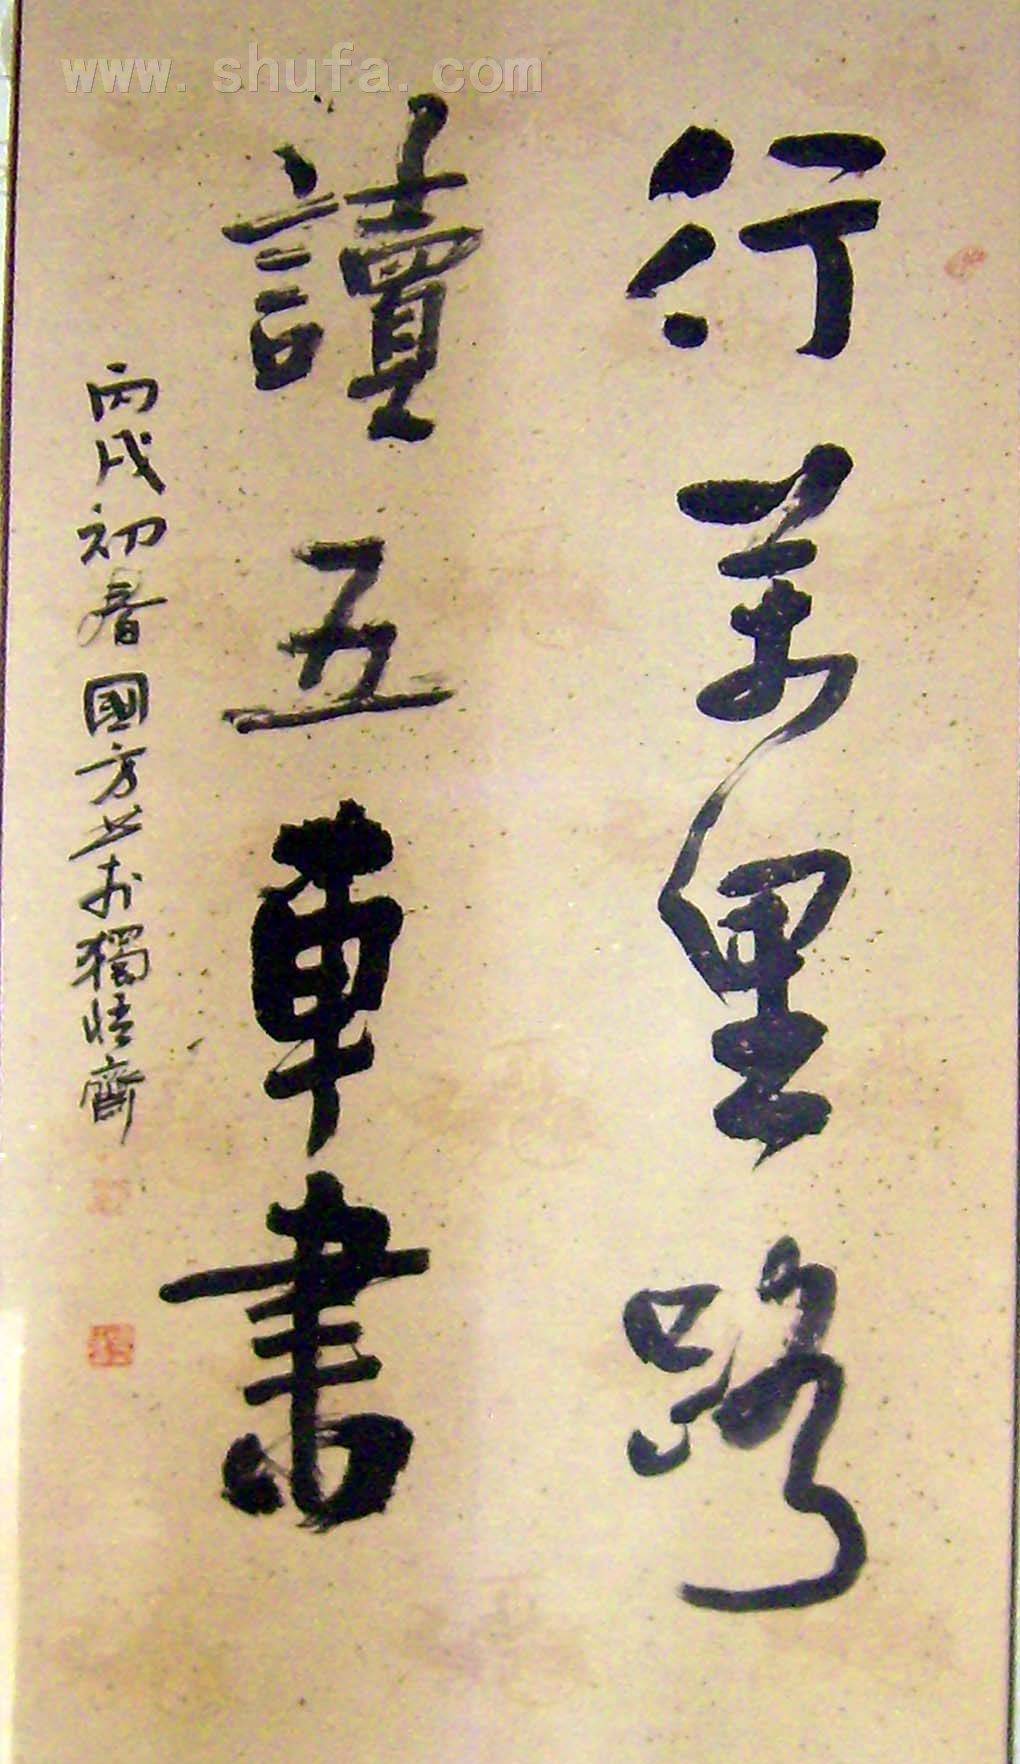 www.shufa.com
行萬里路
讀五車書
丙戌初春國方書於獨悟齋